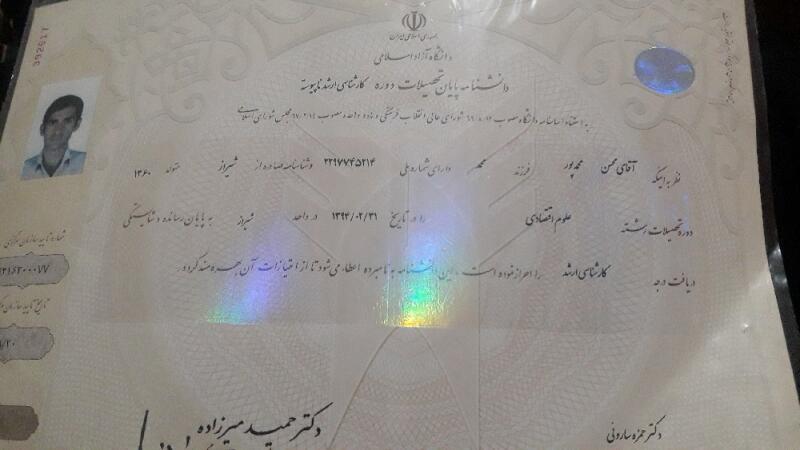 جمهوری اسلامی ایران
دانشگاه آزاد اسلامی
دانشنامه پایان تحصیلات دوره کارشناسی ارشد ناپیوسته
به استناد اساسنامه دانشگاه مصوب شورای عالی انقلاب فرهنگی و ماده واحده مصوب مجلس شورای اسلامی
نظر به اینکه آقای محسن محمدپور فرزند محمد دارای شماره ملی ۲۲۹۷۷۴۵۲۱۴ و شناسنامه صادره از شیراز متولد ۱۳۶۰
دوره تحصیلات رشته علوم اقتصادی را در تاریخ ۱۳۹۴/۰۲/۳۱ در واحد شیراز به پایان رسانده و شایستگی
دریافت درجه کارشناسی ارشد را احراز نموده است این دانشنامه به نامبرده اعطا می‌شود تا از امتیازات آن بهره‌مند گردد.
دکتر حمید میرزاده
دکتر حمزه سارونی
392617
شماره تایید سازمان مرکزی
تاریخ تایید سازمان
/۲۰